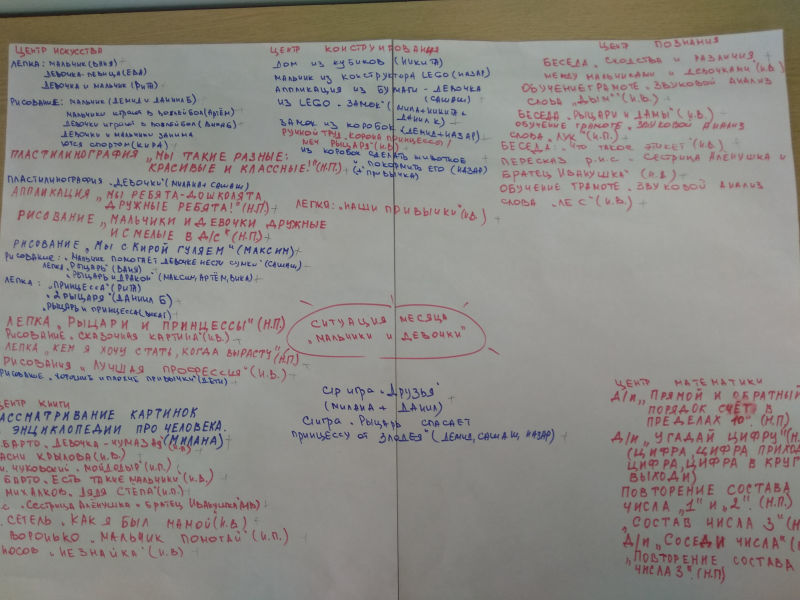 ЦЕНТР ИСКУССТВА
ЛЕПКА: МАЛЬЧИК (ВАНЯ)
ДЕВОЧКА-ПЕВИЦА (ЕВА)
ДЕВОЧКА И МАЛЬЧИК (РИТА)
РИСОВАНИЕ: МАЛЬЧИК (ДЕМИД И ДАНИИЛ Б)
МАЛЬЧИКИ ИГРАЮТ В ВОЛЕЙБОЛ (АРТЁМ)
ДЕВОЧКИ ИГРАЮТ В ВОЛЕЙБОЛ
ДЕВОЧКИ И МАЛЬЧИКИ ЗАНИМА
ЮТСЯ СПОРТОМ (КИРА)
ПЛАСТИЛИНОГРАФИЯ „МЫ ТАКИЕ РАЗНЫЕ:
КРАСИВЫЕ И КЛАССНЫЕ!" (Н.П)
ПЛАСТИЛИНОГРАФИЯ „ДЕВОЧКИ" (МИЛАНА + САШАШ)
АППЛИКАЦИЯ „МЫ РЕБЯТА-ДОШКОЛЯТА,
ДРУЖНЫЕ РЕБЯТА!" (Н.П)
РИСОВАНИЕ „МАЛЬЧИКИ И ДЕВОЧКИ ДРУЖНЫЕ
И СМЕЛЫЕ В Д/С" (Н.П.)
РИСОВАНИЕ „МЫ С КИРОЙ ГУЛЯЕМ" (МАКСИМ)
РИСОВАНИЕ: „МАЛЬЧИК ПОМОГАЕТ ДЕВОЧКЕ НЕСТИ СУМКИ" (САШАШ)
ЛЕПКА „РЫЦАРЬ" (ВАНЯ)
„РЫЦАРЬ И ДРАКОН" (МАКСИМ, АРТЁМ, ВИКА)
ЛЕПКА: „ПРИНЦЕССА" (РИТА)
„2 РЫЦАРЯ" (ДАНИИЛ Б)
„РЫЦАРЬ И ПРИНЦЕССА
ЛЕПКА „РЫЦАРИ И ПРИНЦЕССЫ" (Н.П)
РИСОВАНИЕ „СКАЗОЧНАЯ КАРТИНА" (И.В.)
ЛЕПКА „КЕМ Я ХОЧУ СТАТЬ, КОГДА ВЫРАСТУ" (Н.П)
РИСОВАНИЕ „ЛУЧШАЯ ПРОФЕССИЯ" (И.В.)
РИСОВАНИЕ „ПРИВЫЧКИ" (ДЕТИ)
ЦЕНТР КОНСТРУИРОВАНИЯ
ДОМ ИЗ КУБИКОВ (НИКИТА)
МАЛЬЧИК ИЗ КОНСТРУКТОРА LEGO (НАЗАР)
АППЛИКАЦИЯ ИЗ БУМАГИ - ДЕВОЧКА
(САШАШ)
ИЗ LEGO „ЗАМОК" (МИЛАНА + НИКИТА +
ДАНИЛ К)
ЗАМОК ИЗ КОРОБОК (ДЕМИД + НАЗАР)
РУЧНОЙ ТРУД „КОРОНА ПРИНЦЕССЫ /
МЕЧ РЫЦАРЯ" (И.В)
ИЗ КОРОБОК СДЕЛАТЬ ЖИВОТНОЕ
И ПОКОРМИТЬ ЕГО (НАЗАР)
ПРИВЫЧКА)
ЛЕПКА: „НАШИ ПРИВЫЧКИ" (И.В.)
ЦЕНТР ПОЗНАНИЯ
БЕСЕДА „СХОДСТВА И РАЗЛИЧИЯ
МЕЖДУ МАЛЬЧИКАМИ И ДЕВОЧКАМИ" (И.В.)
ОБУЧЕНИЕ ГРАМОТЕ „ЗВУКОВОЙ АНАЛИЗ
СЛОВА „ДЫМ"" (И.В.)
БЕСЕДА „РЫЦАРИ И ДАМЫ" (И.В.)
ОБУЧЕНИЕ ГРАМОТЕ „ЗВУКОВОЙ АНАЛИЗ
СЛОВА „ЛУК" (И.П.)
БЕСЕДА: „ЧТО ТАКОЕ ЭТИКЕТ" (И.В.)
ПЕРЕСКАЗ Р.Н.С. „СЕСТРИЦА АЛЁНУШКА И
БРАТЕЦ ИВАНУШКА" (И.В.)
ОБУЧЕНИЕ ГРАМОТЕ „ЗВУКОВОЙ АНАЛИЗ
СЛОВА „ЛЕС" (И.В.)
СИТУАЦИЯ МЕСЯЦА
„МАЛЬЧИКИ И ДЕВОЧКИ"
С/Р ИГРА „ДРУЗЬЯ"
(МИЛАНА + ДАНИЛ)
С/Р ИГРА „РЫЦАРЬ СПАСАЕТ
ПРИНЦЕССУ ОТ ЗЛОДЕЯ" (ДЕМИД, САШАШ, НАЗАР)
ЦЕНТР КНИГИ
РАССМАТРИВАНИЕ КАРТИНОК
ЭНЦИКЛОПЕДИИ ПРО ЧЕЛОВЕКА.
(МИЛАНА)
БАРТО „ДЕВОЧКА-ЧУМАЗАЯ"
БАСНИ КРЫЛОВА (И.В.)
ЧУКОВСКИЙ „МОЙДОДЫР" (И.П.)
БАРТО „ЕСТЬ ТАКИЕ МАЛЬЧИКИ" (И.В.)
МИХАЛКОВ „ДЯДЯ СТЁПА" (И.П.)
С. „СЕСТРИЦА АЛЁНУШКА И БРАТЕЦ ИВАНУШКА" (И.В)
СЕГЕЛЬ „КАК Я БЫЛ МАМОЙ" (И.В.)
ВОРОНЬКО „МАЛЬЧИК ПОМОГАЙ" (И.П.)
НОСОВ „НЕЗНАЙКА" (И.В)
ЦЕНТР МАТЕМАТИКИ
Д/И „ПРЯМОЙ И ОБРАТНЫЙ
ПОРЯДОК СЧЁТ В
ПРЕДЕЛАХ 10". (Н.П)
Д/И „УГАДАЙ ЦИФРУ"
(ЦИФРА, ЦИФРА ПРИХОДИ
ЦИФРА, ЦИФРА В КРУГ
ВЫХОДИ)
ПОВТОРЕНИЕ СОСТАВА
ЧИСЛА „1" И „2". (Н.П)
„СОСТАВ ЧИСЛА 3"
Д/И „СОСЕДИ ЧИСЛА"
„ПОВТОРЕНИЕ СОСТАВА
ЧИСЛА 3". (Н.П)